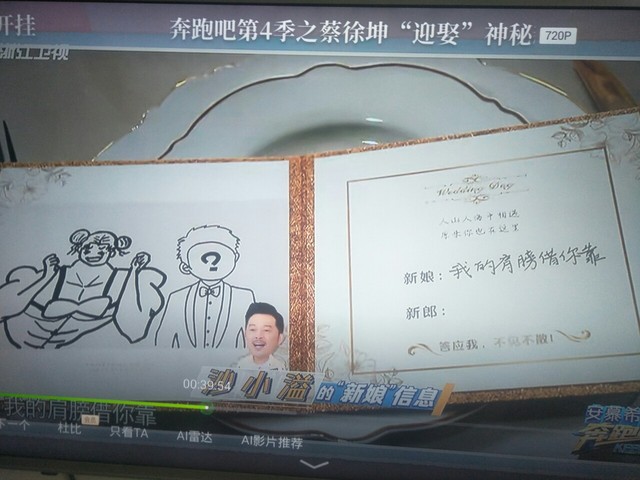 开挂
奔跑吧第4季之蔡徐坤“迎娶”神秘
720P
浙江卫视
Wedding Day
人山人海中相遇
原来你也在这里
新娘：我的肩膀借你靠
新郎：
答应我，不见不散！
?
00:39:54
沙小溢的“新娘”信息
我的肩膀借你靠
下一个
杜比
只看TA
AI雷达
AI影片推荐
安慕希
奔跑